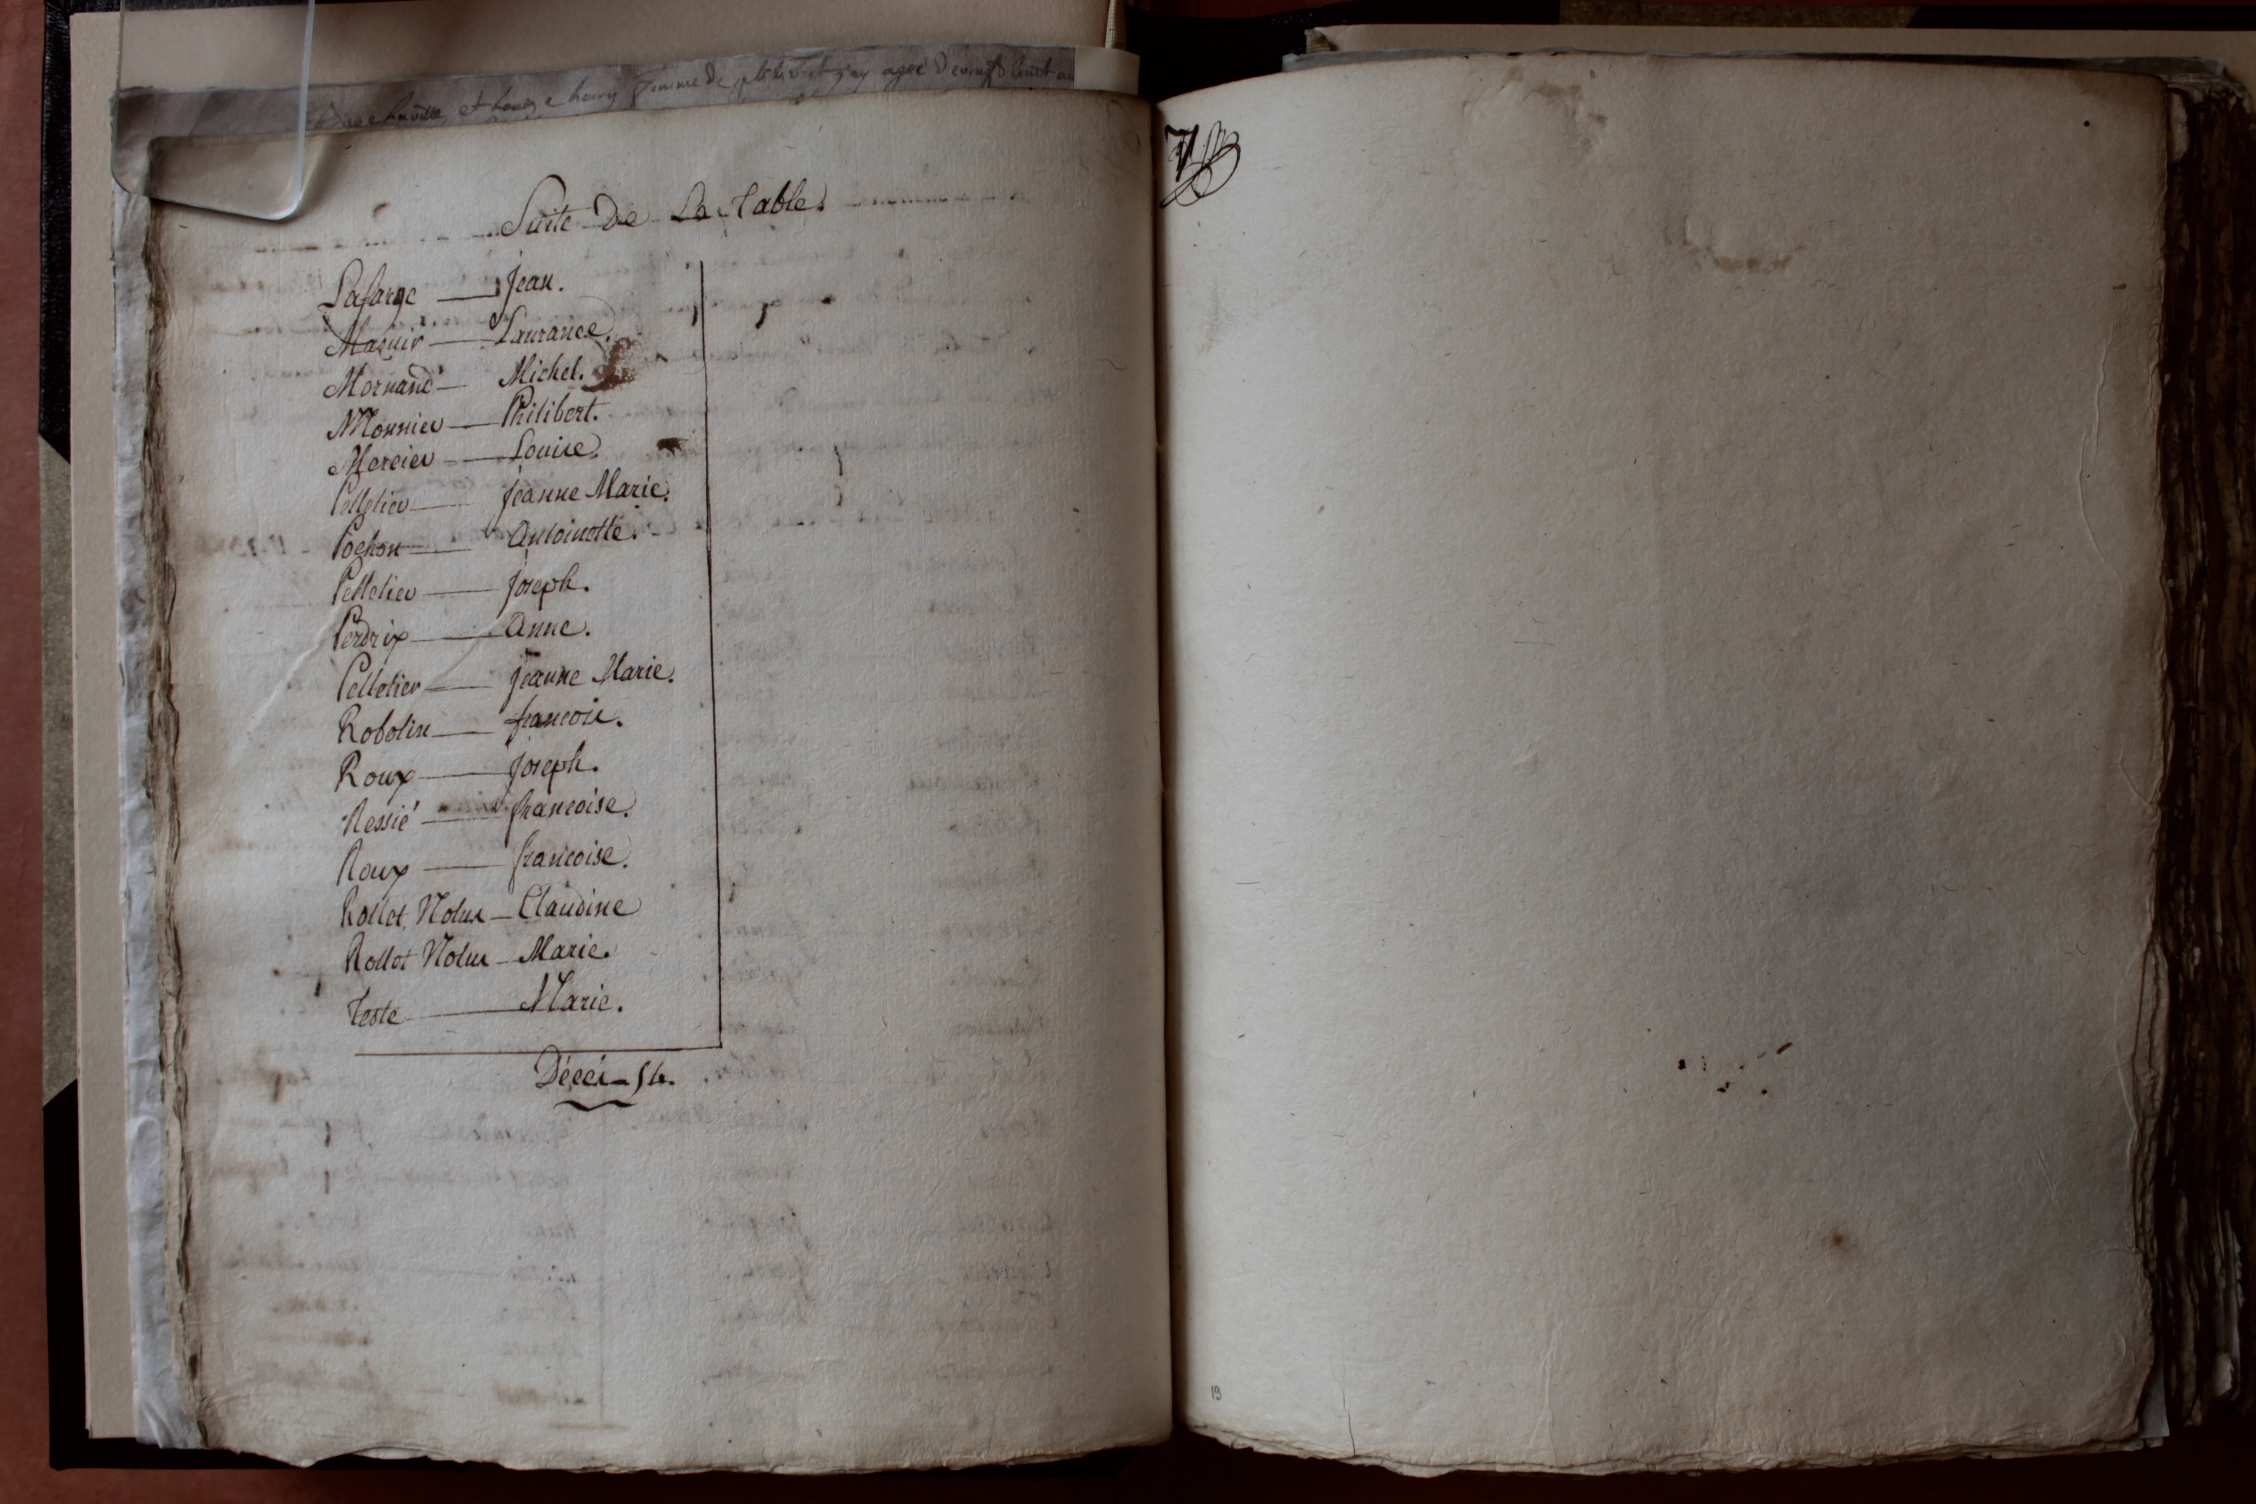 Suite De La Table.
Lafarge — Jean.
Maguir — Laurance.
Mornand — Michel.
Monnier — Philibert.
Mercier — Louise.
Pelletier — Jeanne Marie.
Pochon — Antoinette.
Pelletier — Joseph.
Perdrix — Anne.
Pelletier — Jeanne Marie.
Robolin — francois.
Roux — Joseph.
Ressié — francoise.
Roux — francoise.
Rollet Nolus — Claudine
Rollot Nolus — Marie.
Teste — Marie.
Décéi — 54.
19